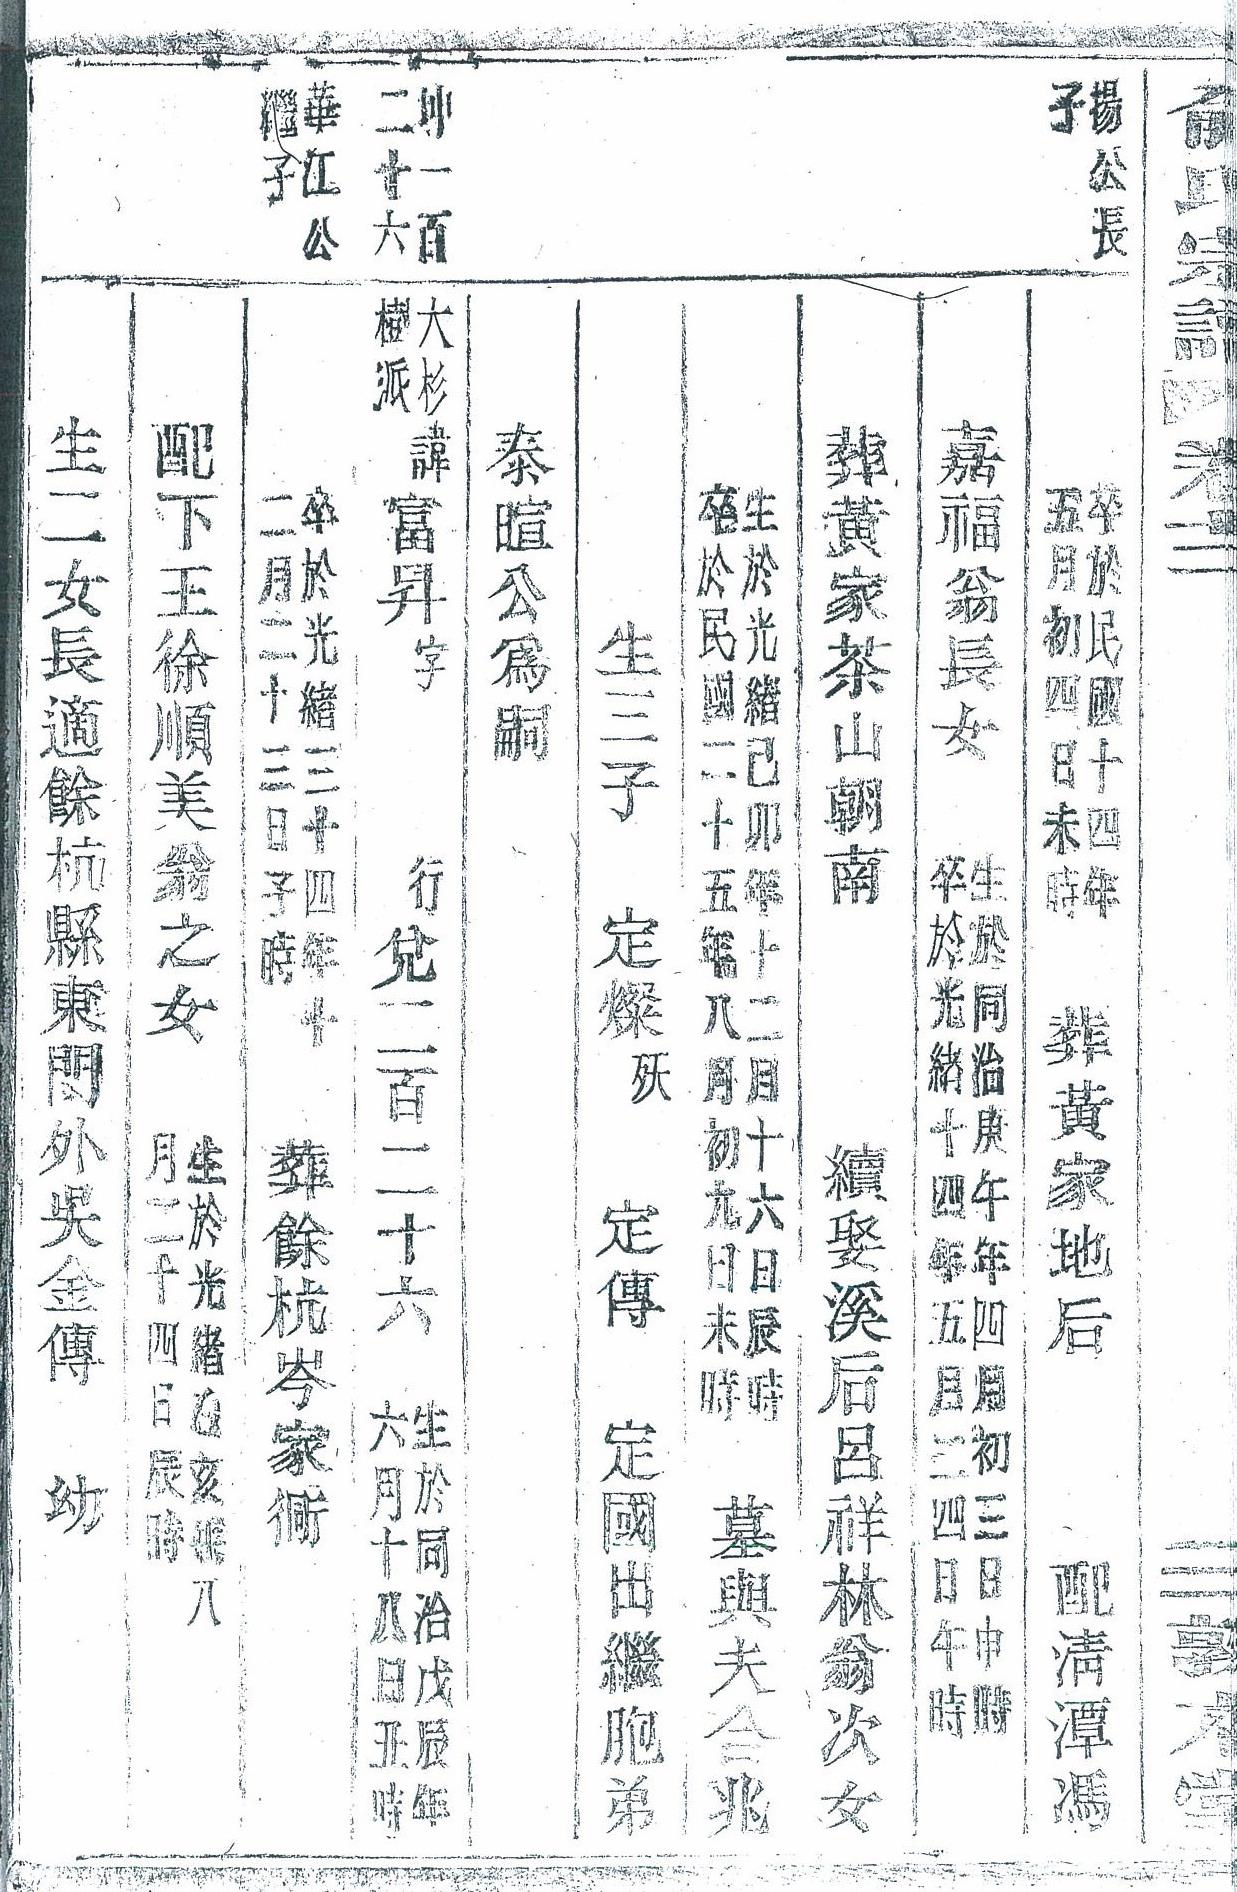 俞氏宗譜 卷二 三 敦本堂
揚公長
子
卒於民國十四年
五月初四日未時
葬黃家地后 配清潭馮
嘉福翁長女
生於同治庚午年四月初三日申時
卒於光緒十四年五月二四日午時
葬黃家茶山朝南 續娶溪后呂祥林翁次女
生於光緒己卯年十二月十六日辰時
卒於民國二十五年八月初九日未時
墓與夫合兆
生三子 定燦 殀 定傳 定國出繼胞弟
泰暄公爲嗣
坤一百
二十六
大杉
樹派
諱富昇 字 行兌二百二十六
生於同治戊辰年
六月十八日丑時
華江公
繼子
卒於光緒三十四年十
二月二十三日子時
葬餘杭岑家衕
配下王徐順美翁之女
生於光緒乙亥年八
月二十四日辰時
生二女長適餘杭縣東門外吳金傳 幼